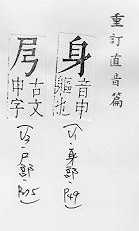 重訂直音篇
身 音申 軀也
(卷1·身部 P49)
𢎨 古文申字
(卷3·尸部 P175)